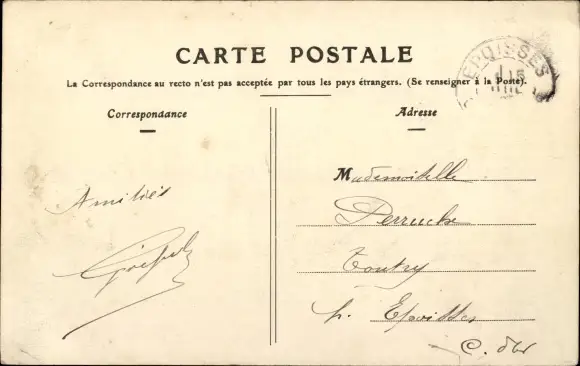 CARTE POSTALE
EPOISSES
15
La Correspondance au recto n'est pas acceptée par tous les pays étrangers. (Se renseigner à la Poste).
Correspondance
Adresse
Amitiés
Mademoiselle
Perruche
Toutry
p. Epoisses
C. d'or